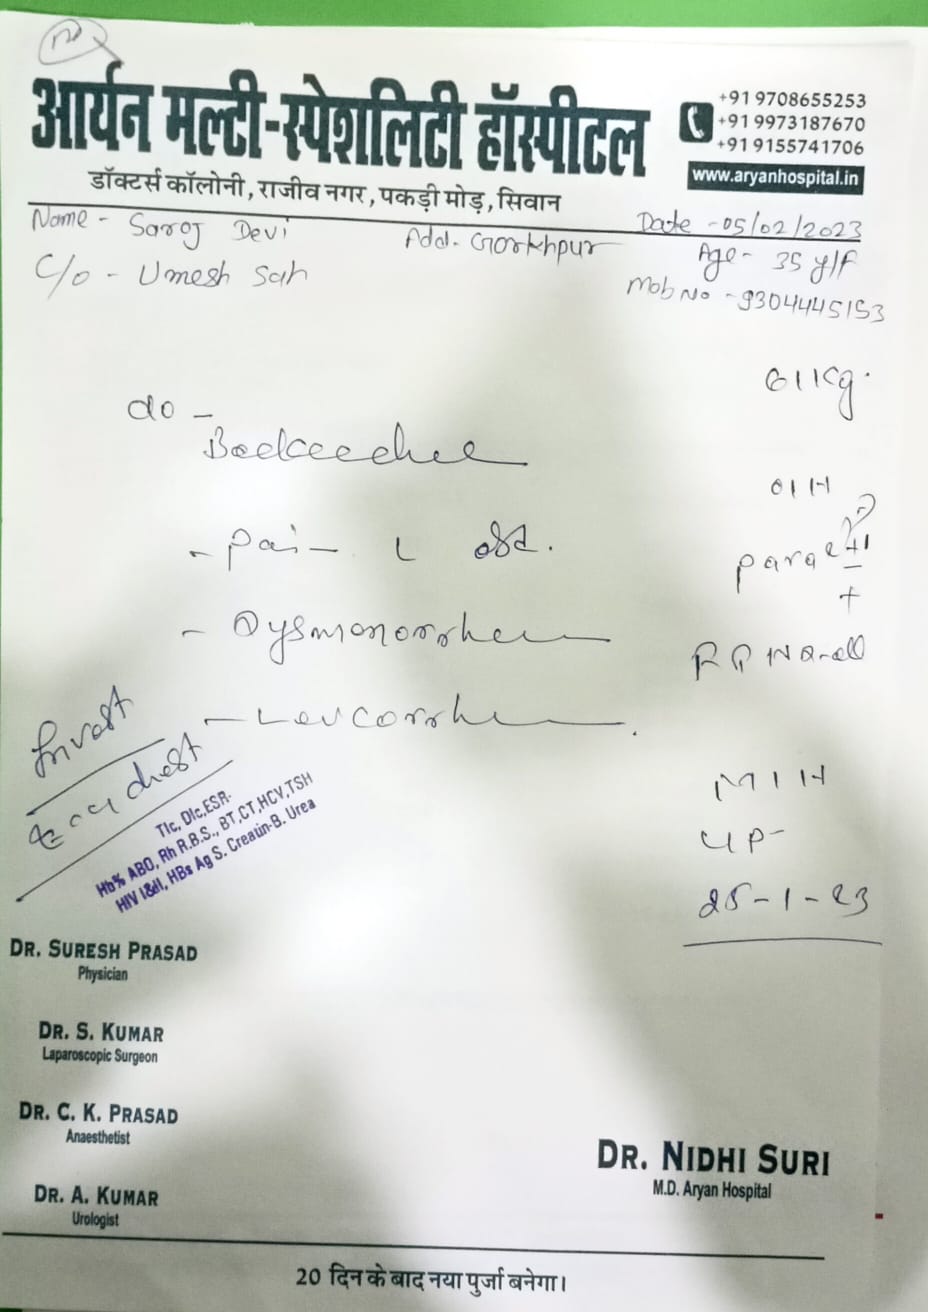 आर्यन मल्टी-स्पेशलिटी हॉस्पीटल
डॉक्टर्स कॉलोनी, राजीव नगर, पकड़ी मोड़, सिवान
+91 9708655253
+91 9973187670
+91 9155741706
www.aryanhospital.in
Name - Saroj Devi
Add- Gorkhpur
Date - 05/02/2023
C/o - Umesh Sah
Age - 35 y/F
Mob No - 9304445153
61 Kg.
- Pain
- Dysmenorrhea
- Leucorrhea
O/H
M/H
25-1-23
Invest
Tlc, Dlc, ESR.
Hb% ABO, Rh R.B.S., BT,CT,HCV,TSH
HIV I&II, HBs Ag S. Creatin-B. Urea
DR. SURESH PRASAD
Physician
DR. S. KUMAR
Laparoscopic Surgeon
DR. C. K. PRASAD
Anaesthetist
DR. A. KUMAR
Urologist
DR. NIDHI SURI
M.D. Aryan Hospital
20 दिन के बाद नया पुर्जा बनेगा।